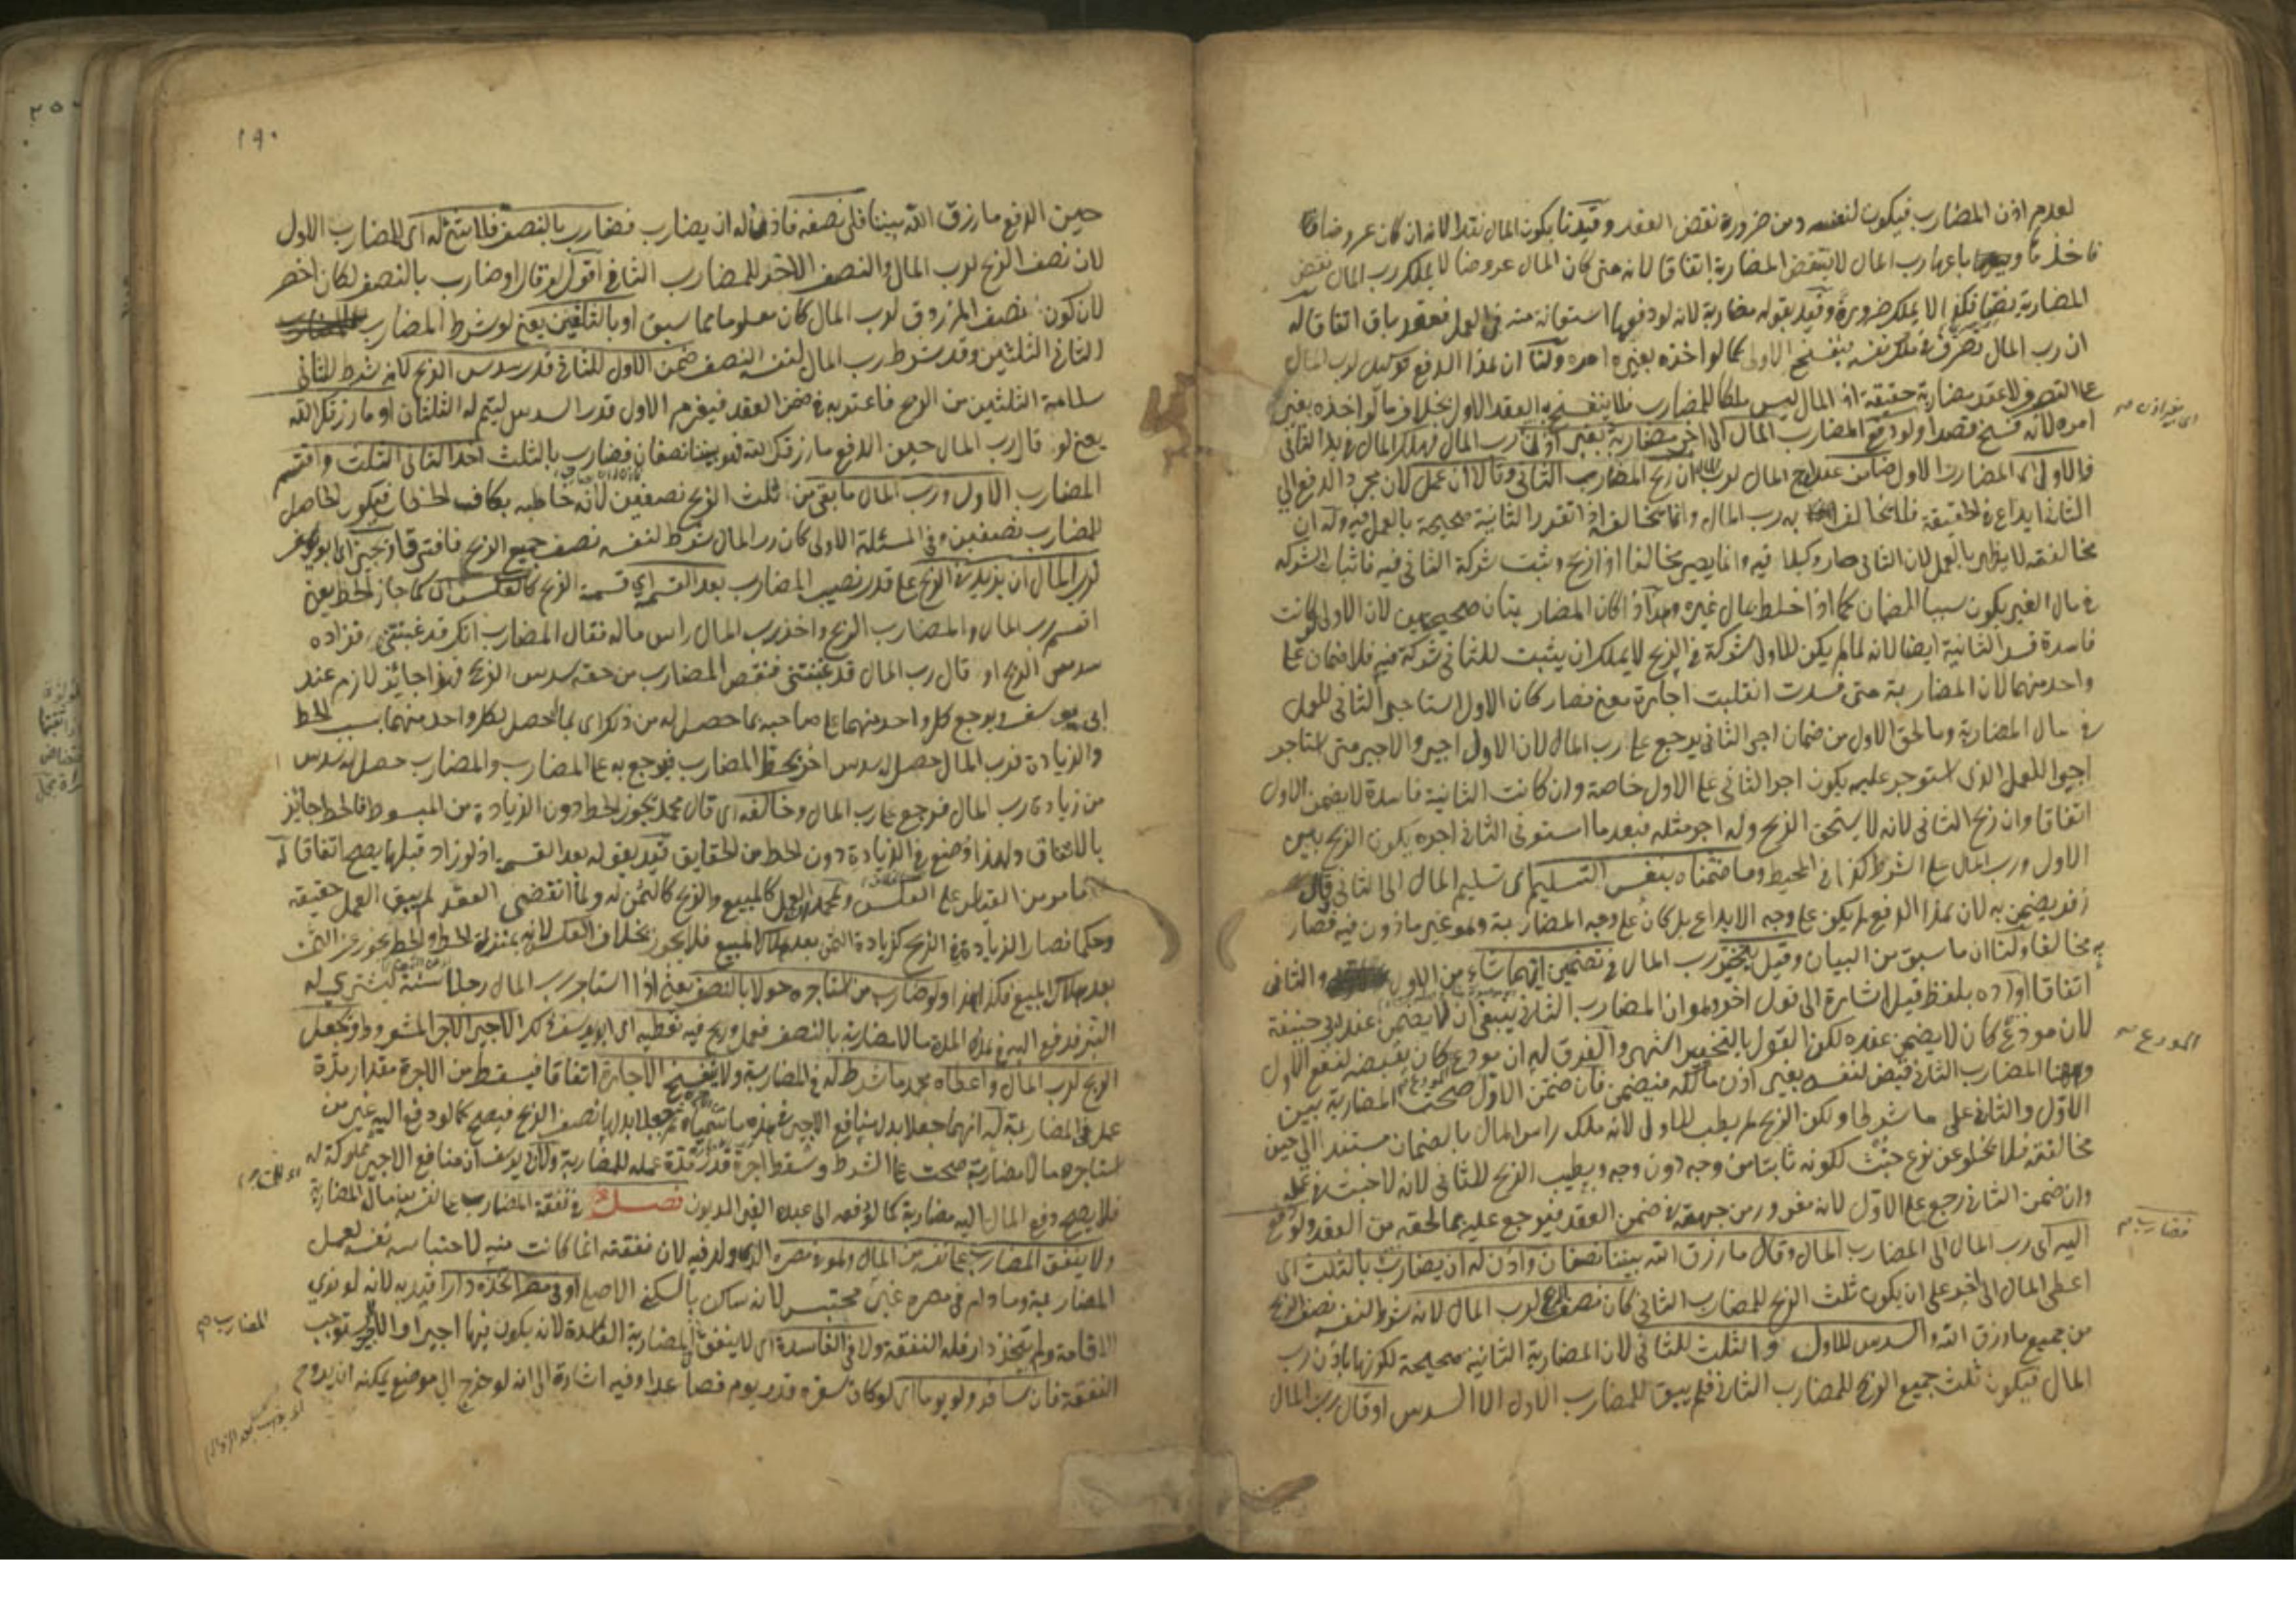 لعدم اذن المضارب فيكون لنفسه ومن ضرورة نقض العقد وقيدنا بكون المال نقدا لانه ان كان عروضا
فاخذها باعها رب المال لا ينتقض المضاربة اتفاقا لانه متى كان المال عروضا لا يملك رب المال نقض
المضاربة وقيد بقوله مضاربة لانه لو دفعها استعانة منه في العمل فعقد باق اتفاقا له
ان رب المال تصرف في ملك نفسه فينفسخ الاول كما لو اخذه بغير امره ولنا ان هذا الدفع توكيل لرب المال
على التصرف لا عقد مضاربة حقيقة اذ المال ليس ملكا للمضارب فلا ينفسخ به العقد الاول بخلاف ما لو اخذه بغير
امره لانه فسخ قصدا ولو دفع المضارب المال الى اخر مضاربة بغير اذن رب المال فهلك المال في يد الثاني
فالاول اي المضارب الاول ضامن عند المال لرب ان ربح المضارب الثاني وقالا ان عمل لان مجرد الدفع الى
الثاني ايداع في الحقيقة فلا يخالف به رب المال وانما يخالف اذا تقرر الثانية صحيحة بالعمل فيه وله ان
مخالفته لا يظهر بالعمل لان الثاني صار وكيلا فيه وانما يصير مخالفا اذا ربح وثبت شركة الثاني فيه فاثبات الشركة
في مال الغير يكون سببا للضمان كما اذا خلط بمال غيره وهذا اذا كان المضاربتان صحيحتين لان الاولى لو كانت
فاسدة فسد الثانية ايضا لانه لما لم يكن للاول شركة في الربح لا يملك ان يثبت للثاني شركة فيه فلا ضمان على
واحد منهما لان المضاربة متى فسدت انقلبت اجارة معنى فصار كان الاول استاجر الثاني للعمل
في مال المضاربة وما لحق الاول من ضمان اجر الثاني يرجع على رب المال لان الاول اجير والاجير متى استاجر
اجيرا للعمل الذي استوجر عليه يكون اجر الثاني على الاول خاصة وان كانت الثانية فاسدة لا يضمن الاول
اتفاقا وان ربح الثاني لانه لا يستحق الربح وله اجر مثله فبعد ما استوفى الثاني اجره يكون الربح بين
الاول ورب المال على الشرط كذا في المحيط وما ضمناه بنفس التسليم اي تسليم المال الى الثاني قال
زفر يضمن به لان هذا الدفع لم يكن على وجه الايداع بل كان على وجه المضاربة وهو غير ماذون فيه فصار
به مخالفا ولنا ان ما سبق من البيان وقيل يخير رب المال في تضمين ايهما شاء من الاول والثاني
اتفاقا اورده بلفظ قيل اشارة الى قول اخر وهو ان المضارب الثاني ينبغي ان لا يضمن عند ابي حنيفة
لان مودع كان لا يضمن عنده لكن القول بالتخيير اشهر والفرق له ان مودع كان يقبضه لنفع الاول
وههنا المضارب الثاني قبض لنفسه بغير اذن مالكه فيضمن فان ضمن الاول صحت المضاربة بين
الاول والثاني على ما شرطا ولكن الربح لم يطب للاول لانه ملك راس المال بالضمان مستندا الى حين
مخالفته فلا يخلو عن نوع خبث لكونه ثابتا من وجه دون وجه ويطيب الربح للثاني لانه لا خبث في عمله
وان ضمن الثاني رجع على الاول لانه مغرور من جهته في ضمن العقد فيرجع عليه بما لحقه من العقد ولو دفع
اليه اي رب المال الى المضارب المال وقال ما رزق الله بيننا نصفان واذن له ان يضارب بالثلث اي
اعطى المال الى اخر على ان يكون ثلث الربح للمضارب الثاني كان نصف الربح لرب المال لانه شرط لنفسه نصف الربح
من جميع ما رزق الله والسدس للاول والثلث للثاني لان المضاربة الثانية صحيحة لكونها باذن رب
المال فيكون ثلث جميع الربح للمضارب الثاني فلم يبق للمضارب الاول الا السدس او قال رب المال
المودع
مضارب
١٩٠
حين الدفع ما رزق الله بيننا فلي نصفه فاذن له ان يضارب فضارب بالنصف فلا شئ له اي للمضارب الاول
لان نصف الربح لرب المال والنصف الاخر للمضارب الثاني اقول لو قال او ضارب بالنصف لكان اخصر
لان كون نصف المرزوق لرب المال كان معلوما مما سبق او بالثلثين يعني لو شرط المضارب
الثاني الثلثين وقد شرط رب المال لنفسه النصف ضمن الاول للثاني قدر سدس الربح لانه شرط للثاني
سلامة الثلثين من الربح فاعتبر به في ضمن العقد فيغرم الاول قدر السدس ليتم له الثلثان او ما رزقك الله
يعني لو قال رب المال حين الدفع ما رزقك الله فهو بيننا نصفان فضارب بالثلث اخذ الثاني الثلث واقتسم
المضارب الاول ورب المال ما بقي من ثلث الربح نصفين لانه خاطبه بكاف الخطاب فيكون الحاصل
للمضارب نصفين وفي المسئلة الاولى كان رب المال شرط لنفسه نصف جميع الربح فافترقا ويجيز ابو يوسف
لرب المال ان يزيد في الربح على قدر نصيب المضارب بعد القسمة اي قسمة الربح كالعكس اي كما جاز الحط يعني
اقتسم رب المال والمضارب الربح واخذ رب المال راس ماله فقال المضارب انك قد غبنتني فزاده
سدس الربح او قال رب المال قد غبنتني فنقص المضارب من حقه سدس الربح فهذا جائز لازم عند
ابي يوسف ويرجع كل واحد منهما على صاحبه بما حصل له من ذلك اي بما حصل لكل واحد منهما بسبب الحط
والزيادة فرب المال حصل له سدس اخر بحط المضارب فيرجع به على المضارب والمضارب حصل له سدس
من زيادة رب المال فيرجع على رب المال وخالفه اي قال محمد يجوز الحط دون الزيادة من المبسوط فالحط جائز
بالاتفاق ولهذا وضع في الزيادة دون الحط من الحقايق قيد بقوله بعد القسمة اذ لو زاد قبلها يصح اتفاقا له
ما مر من القياس على العكس ولمحمد ان العمل كالمبيع والربح كالثمن له ولما انقضى العقد لم يبق العمل حقيقة
وحكما فصار الزيادة في الربح كزيادة الثمن بعد هلاك المبيع فلا يجوز بخلاف العكس لانه بمنزلة الحط والحط يجوز عن الثمن
بعد هلاك المبيع فكذا هذا ولو ضارب من استاجره حولا بالنصف يعني اذا استاجر رب المال رجلا سنة ليشتري له
البز فدفع اليه في هذه المدة مالا مضاربة بالنصف فعمل وربح فيه نعطيه اي ابو يوسف ذلك الاجير الاجر المشروط ونجعل
الربح لرب المال واعطاه محمد ما شرط له في المضاربة ولا يفسخ الاجارة اتفاقا فيسقط من الاجرة مقدار مدة
عمله في المضاربة له انهما جعلا بدل منافع الاجير في هذه ما سمياه ثم جعلا بدلها نصف الربح فيصح كما لو دفع اليه غير من
استاجره مالا مضاربة صحت على الشرط وسقط اجرة قدر مدة عمله للمضاربة ولابي يوسف ان منافع الاجير مملوكة له
فلا يصح دفع المال اليه مضاربة كما لو دفعه الى عبده الغير المديون فصل في نفقة المضارب على نفسه من مال المضاربة
ولا ينفق المضارب على نفسه من المال وهو في مصره الذي ولد فيه لان نفقته انما كانت فيه لاحتباسه نفسه لعمل
المضاربة وما دام في مصره غير محتبس لانه ساكن بالسكنى الاصلي او في مصر اتخذه دارا قيد به لانه لو نوى
الاقامة ولم يتخذ دارا فله النفقة ولا في الفاسدة اي لا ينفق في المضاربة الفاسدة لانه يكون فيها اجيرا والاجير لا يستوجب
النفقة فان سافر ولو يوما اي لو كان سفره قدر يوم فصاعدا وفيه اشارة الى انه لو خرج الى موضع يمكنه ان يروح
المضارب